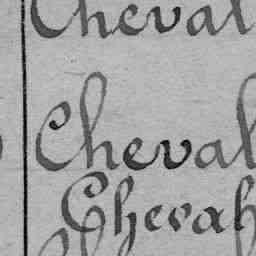 Cheval
Cheval
Chevah